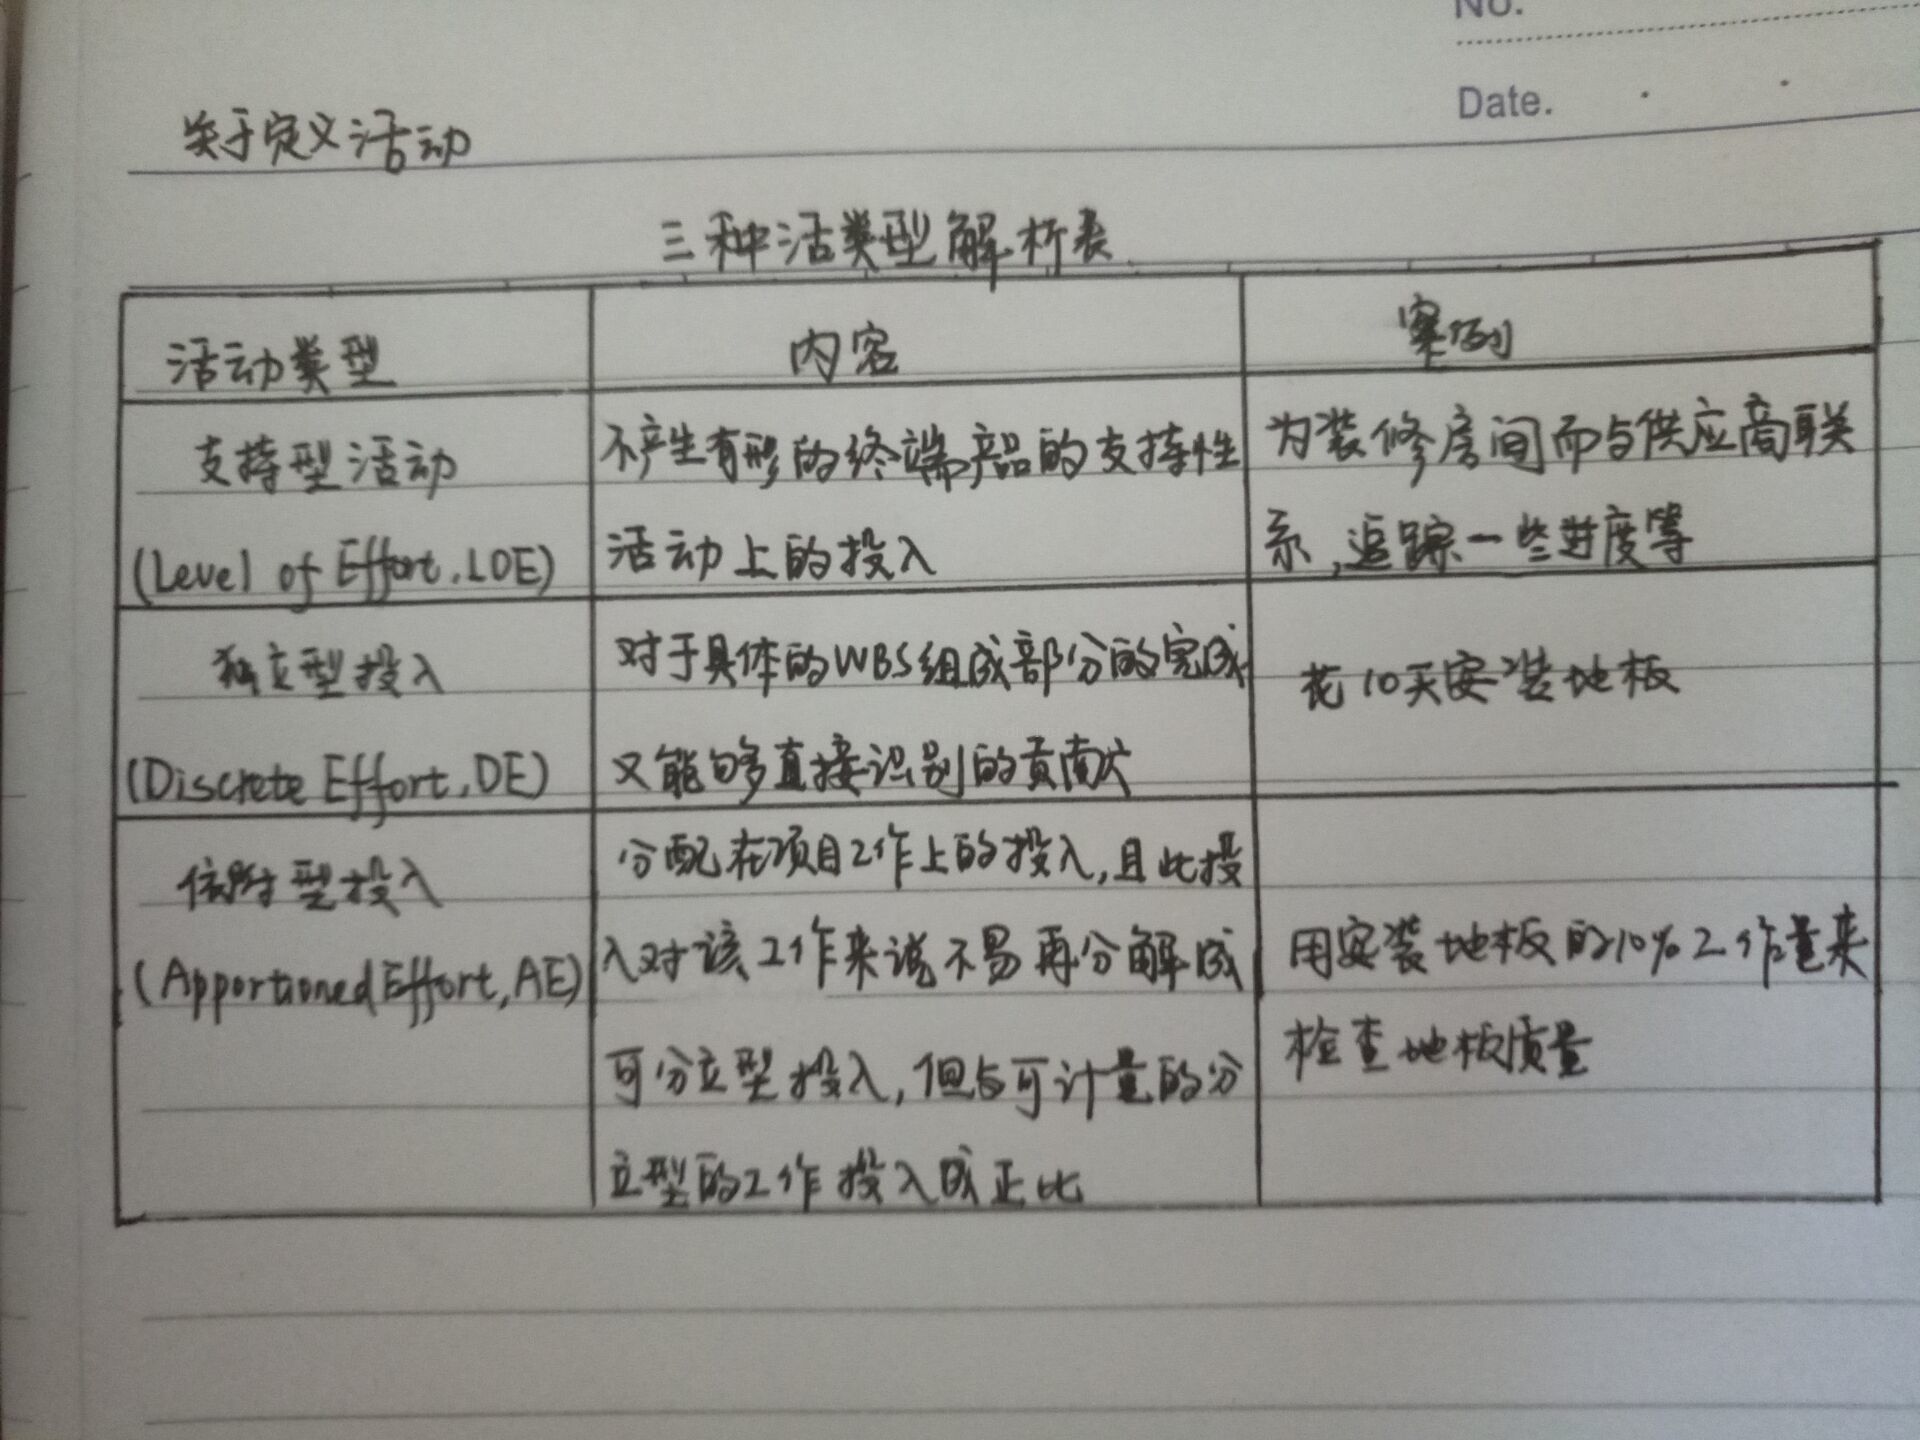 No.
Date.
关于定义活动
三种活类型解析表
活动类型
内容
案例
支持型活动
(Level of Effort,LOE)
不产生有形的终端产品的支持性
活动上的投入
为装修房间而与供应商联
系,追踪一些进度等
独立型投入
(Discrete Effort,DE)
对于具体的WBS组成部分的完成
又能够直接识别的贡献
花10天安装地板
依附型投入
(Apportioned Effort,AE)
分配在项目工作上的投入,且此投
入对该工作来说不易再分解成
可分立型投入,但与可计量的分
立型的工作投入成正比
用安装地板的10%工作量来
检查地板质量